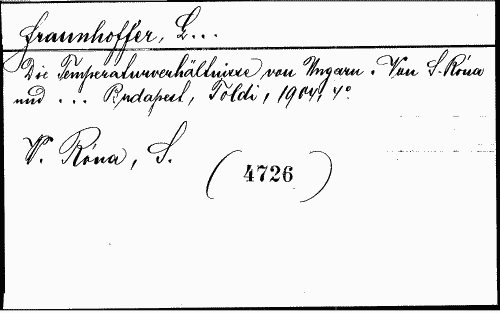 Fraunhoffer, L...
Die Temperaturverhältnisse von Ungarn. Von S. Róna
und ... Budapest, Toldi, 1904, 4°.
V. Róna, S.
(4726)